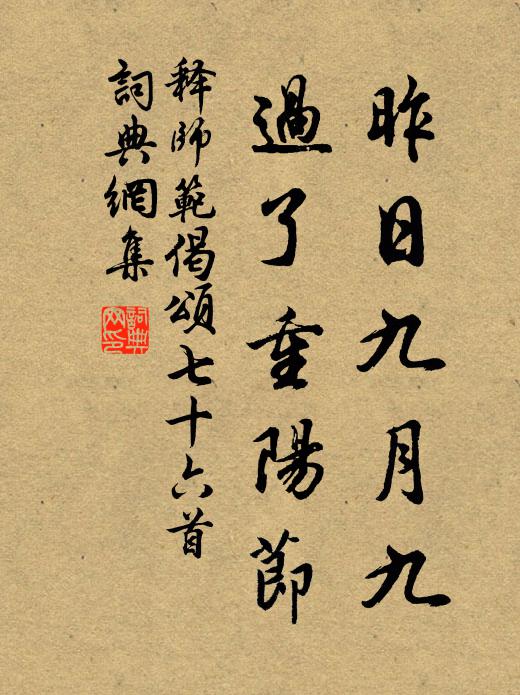 昨日九月九
過了重陽節
释師範偈頌七十六首
詞典網集
詞典网印